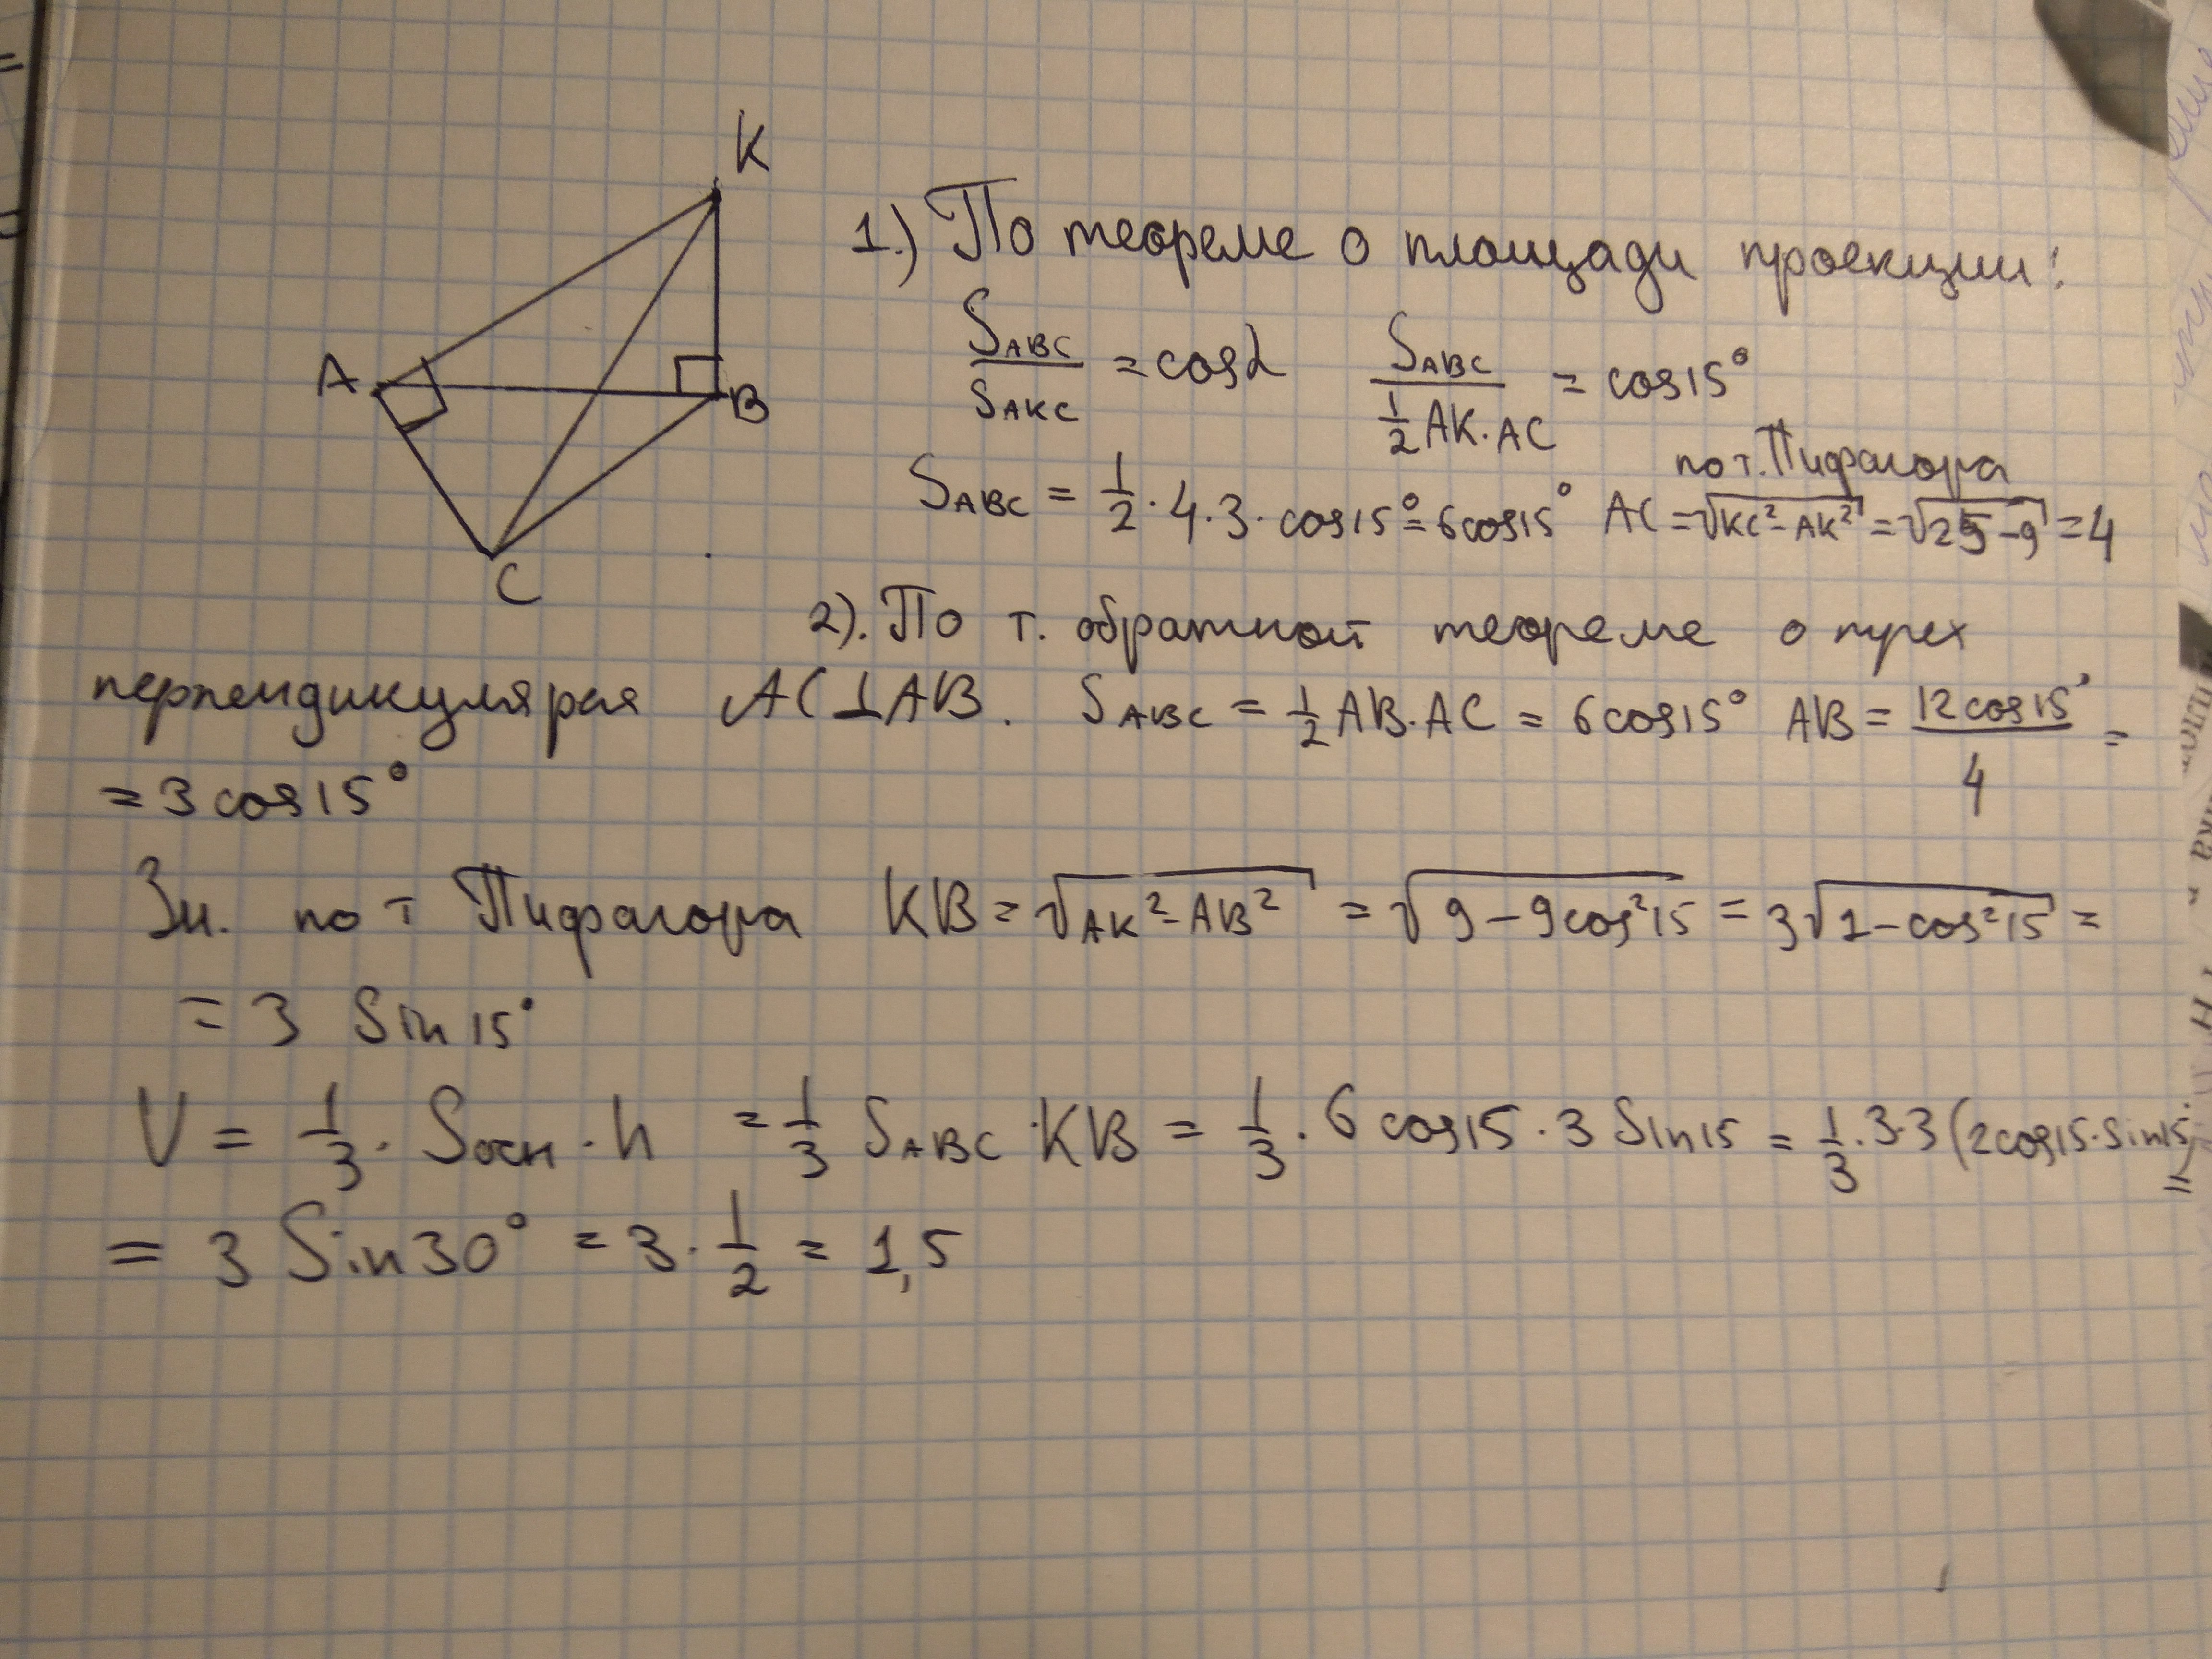 K
A
B
C
1.) По теореме о площади проекции:
S_ABC / S_AKC = cosα   S_ABC / (1/2 AK·AC) = cos15°
по т. Пифагора
S_ABC = 1/2 · 4 · 3 · cos15° = 6cos15°   AC = √(KC² - AK²) = √(25 - 9) = 4
2). По т. обратной теореме о трех
перпендикулярах AC⊥AB. S_ABC = 1/2 AB·AC = 6cos15°   AB = 12cos15° / 4 =
= 3cos15°
Зн. по т Пифагора KB = √(AK² - AB²) = √(9 - 9cos²15) = 3√(1 - cos²15) =
= 3 Sin15°
V = 1/3 · Sосн · h = 1/3 S_ABC · KB = 1/3 · 6 cos15 · 3 Sin15 = 1/3 · 3·3 (2cos15·Sin15) =
= 3 Sin30° = 3 · 1/2 = 1,5